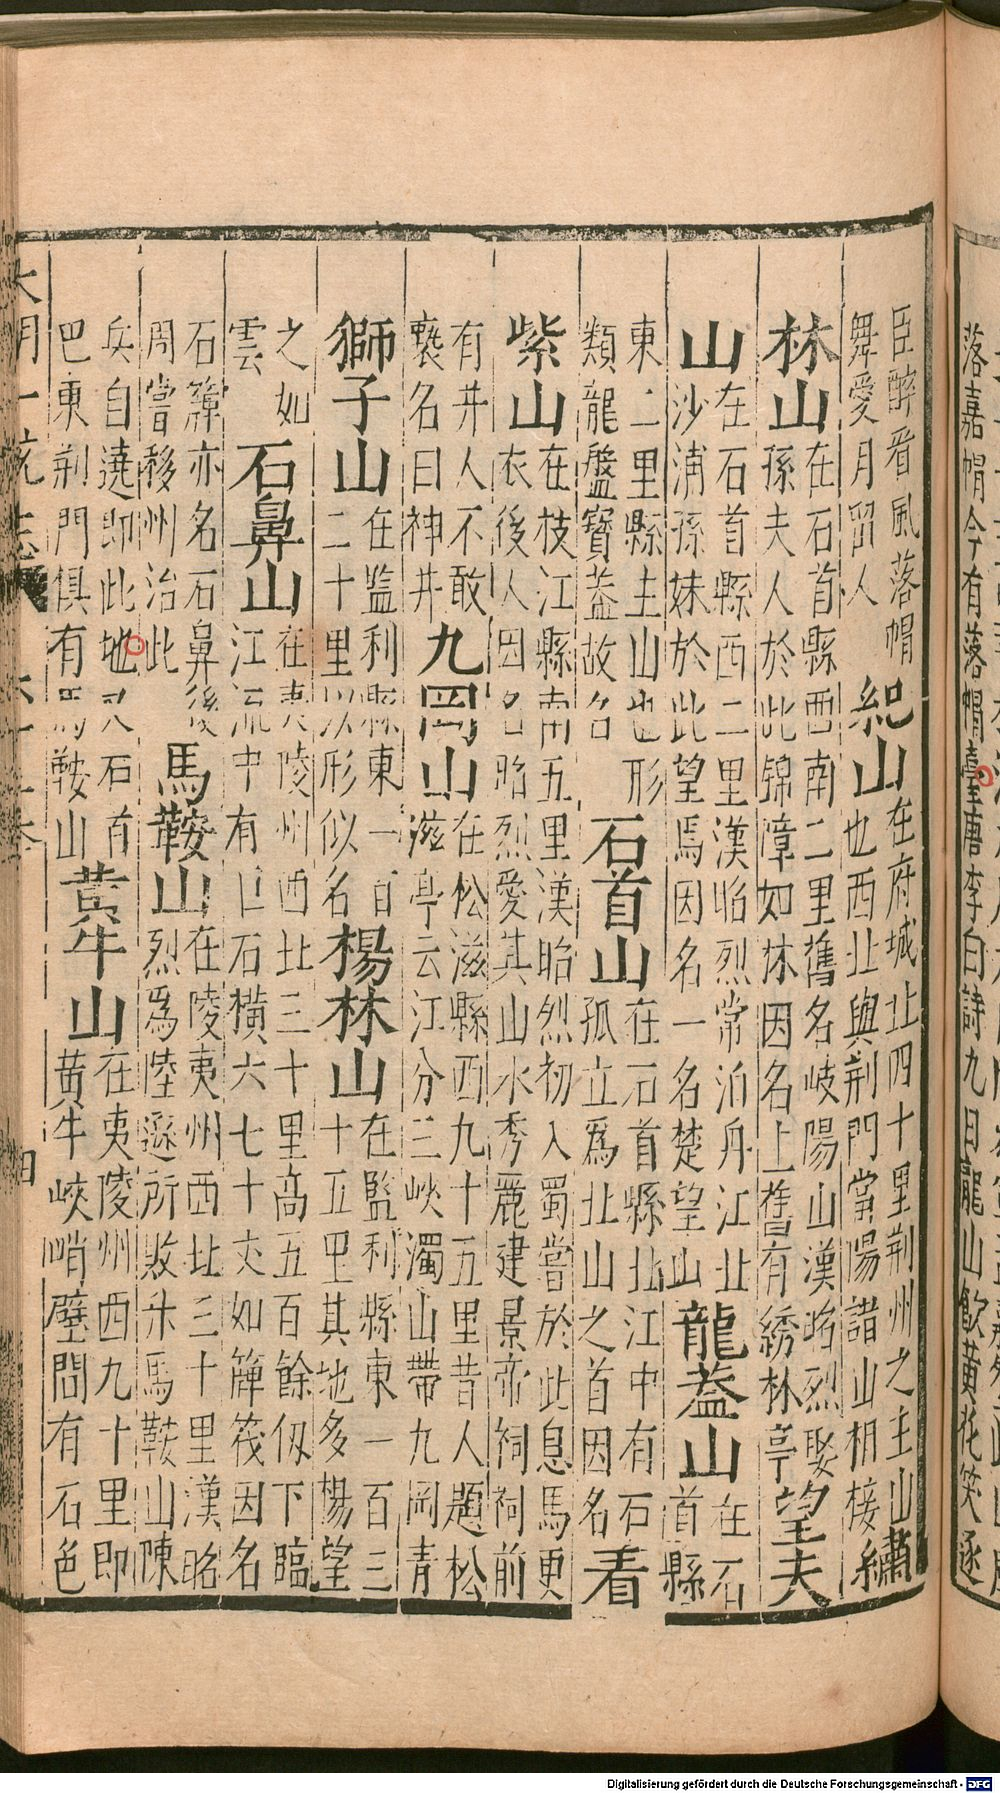 臣醉看風落帽
舞愛月留人
紀山
在府城北四十里荆州之主山
也西北與荆門當陽諸山相接
繡
林山
在石首縣西南二里舊名岐陽山漢昭烈娶
孫夫人於此錦障如林因名上舊有綉林亭
望夫
山
在石首縣西二里漢昭烈常泊舟江北
沙浦孫妹於此望焉因名一名楚望山
龍蓋山
在石
首縣
東二里縣主山也形
類龍盤寶蓋故名
石首山
在石首縣北江中有石
孤立爲北山之首因名
看
紫山
在枝江縣南五里漢昭烈初入蜀嘗於此息馬更
衣後人因名昭烈愛其山水秀麗建景帝祠祠前
有井人不敢
褻名曰神井
九岡山
在松滋縣西九十五里昔人題松
滋亭云江分三峽濁山帶九岡青
獅子山
在監利縣東一百
二十里以形似名
楊林山
在監利縣東一百三
十五里其地多楊望
之如
雲
石鼻山
在夷陵州西北三十里高五百餘仭下臨
江流中有巨石橫六七十丈如簰筏因名
石簰亦名石鼻後
周嘗移州治此
馬鞍山
在陵夷州西北三十里漢昭
烈爲陸遜所敗升馬鞍山陳
兵自遶即此地又石首
巴東荆門俱有馬鞍山
黃牛山
在夷陵州西九十里即
黄牛峽峭壁間有石色
大明一統志
落嘉帽今有落帽臺唐李白詩九日龍山飲黃花笑逐
Digitalisierung gefördert durch die Deutsche Forschungsgemeinschaft - DFG